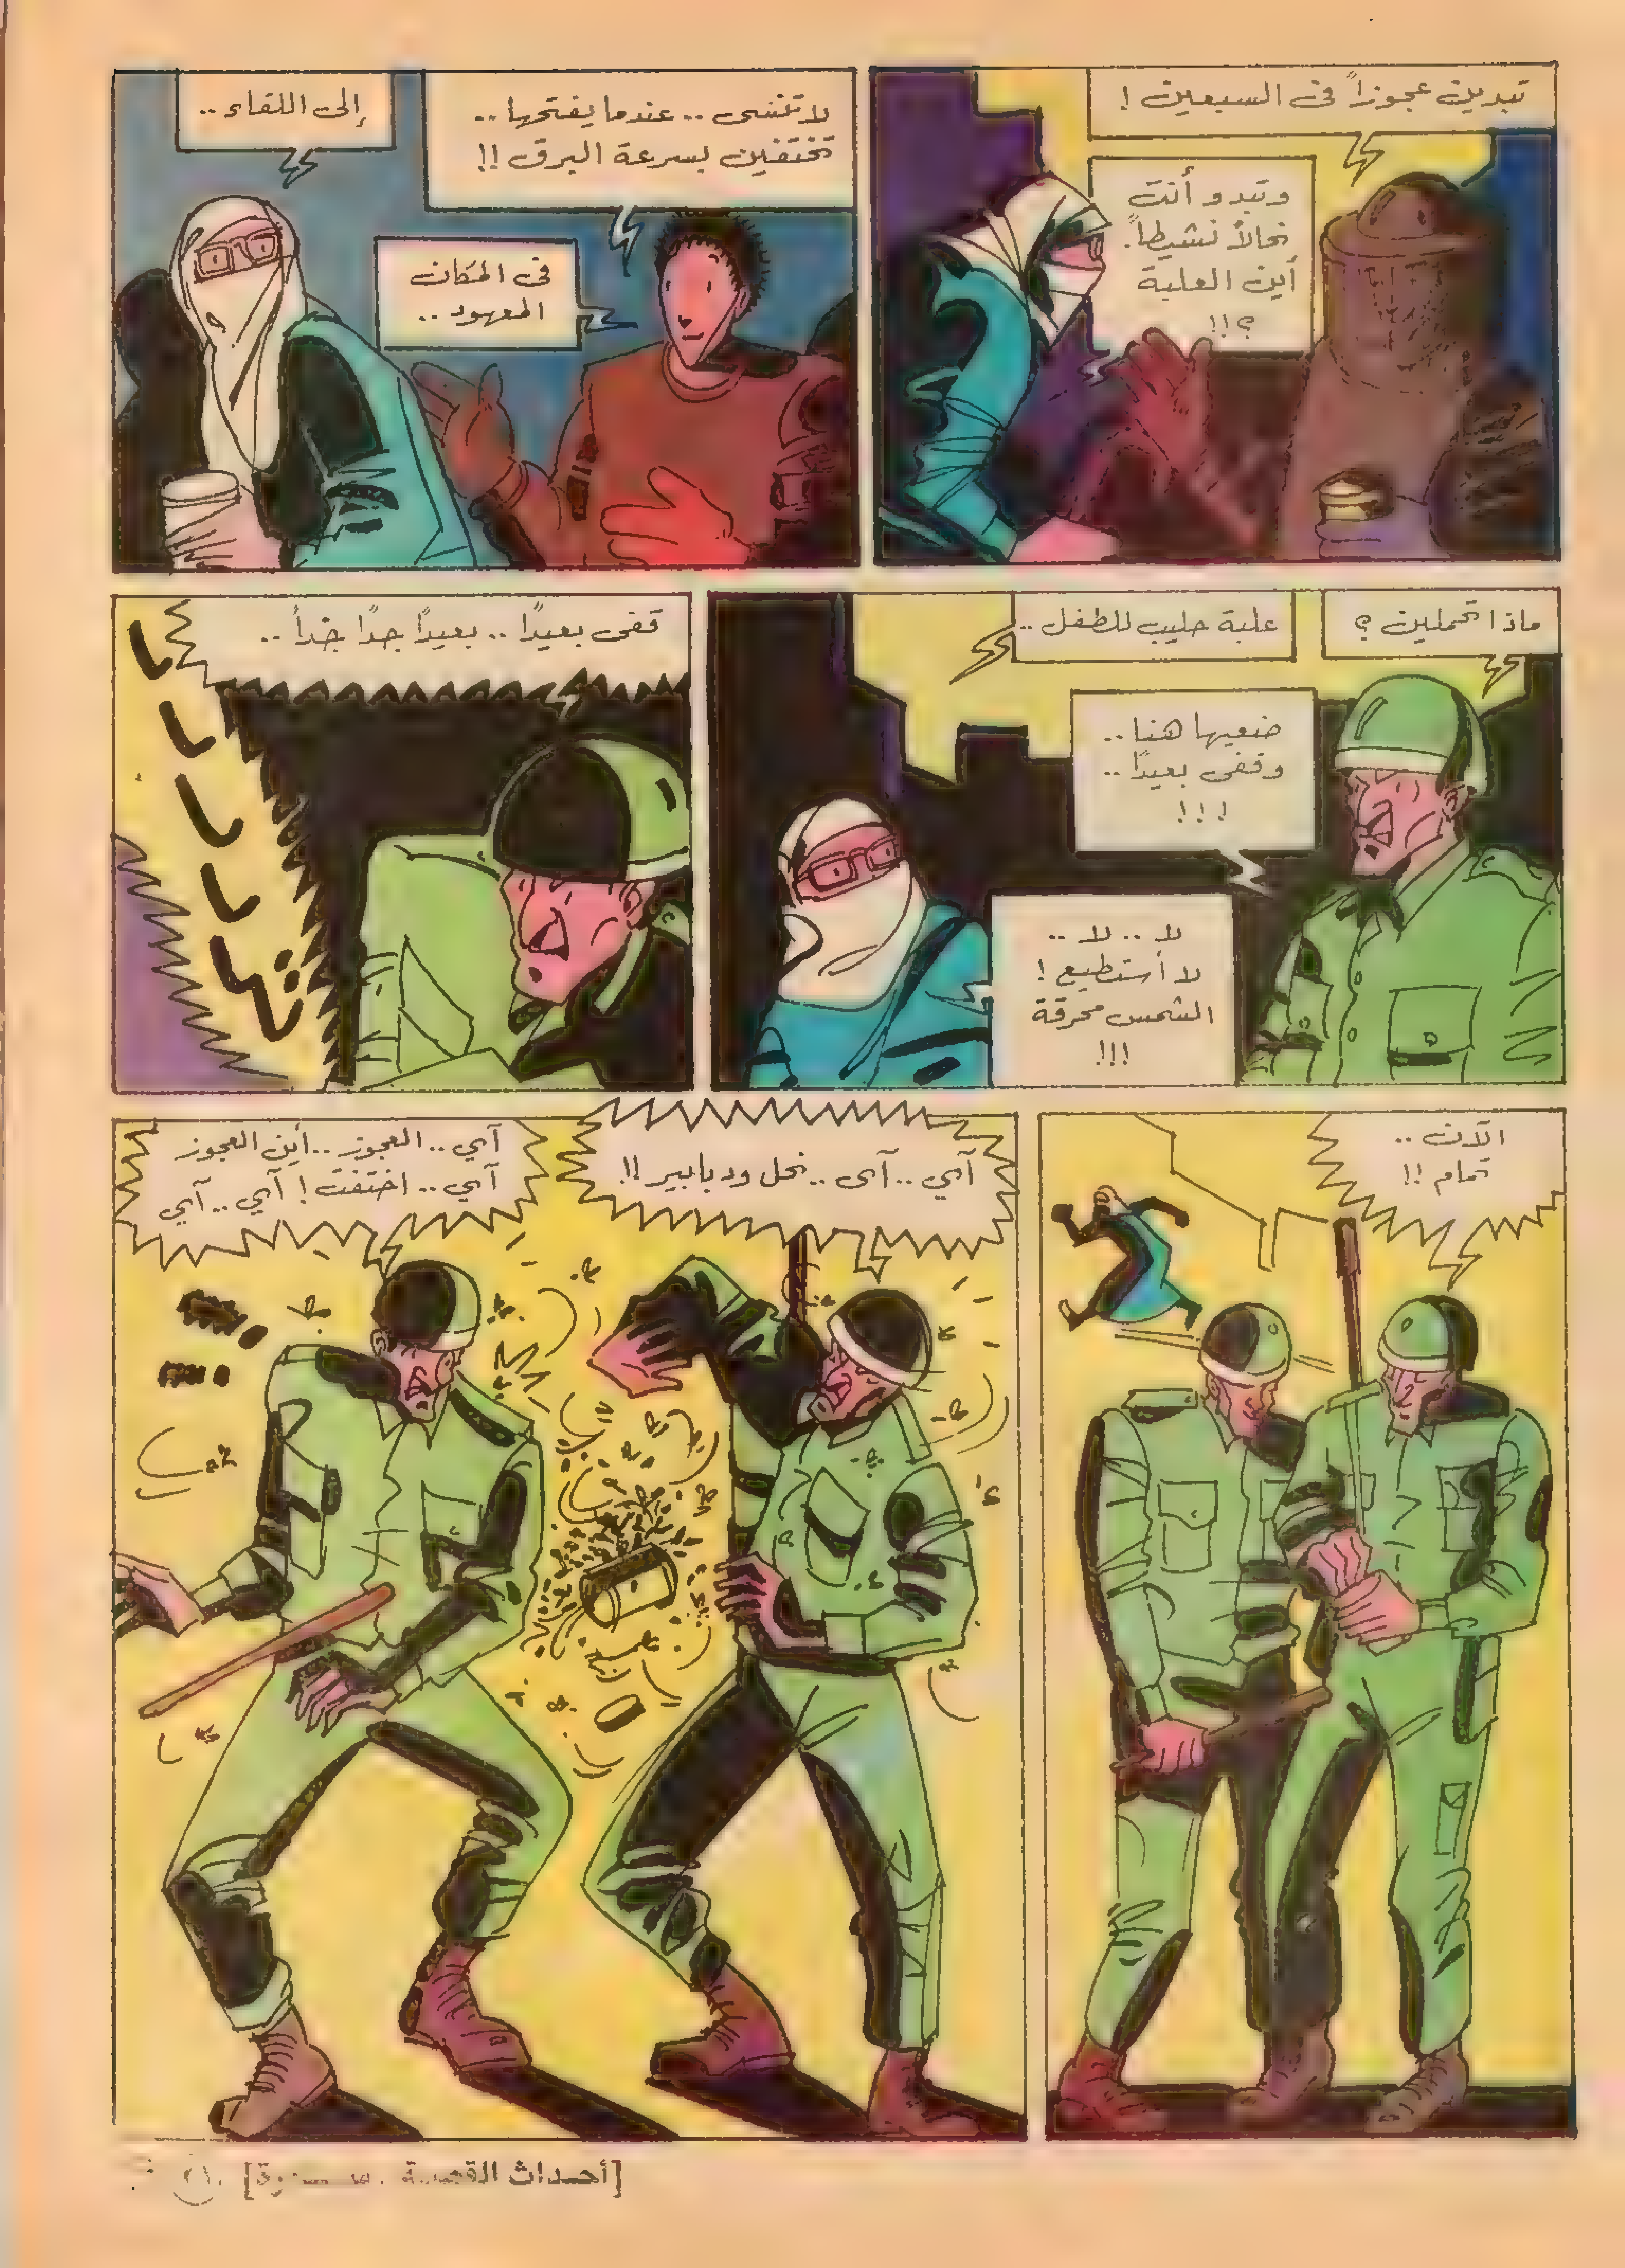 تبدين عجوزاً فى السبعين !
وتبدو أنت
نحالاً نشيطاً.
أين العلبة
؟!!
لا تنسى .. عندما يفتحها ..
تختفين بسرعة البرق !!
فى المكان
المعهود ..
إلى اللقاء ..
ماذا تحملين ؟
علبة حليب للطفل ..
ضعيها هنا ..
وقفى بعيدًا ..
! ! !
لا .. لا ..
لا أستطيع !
الشمس محرقة
!!!
قفى بعيدًا .. بعيدًا جدًا جداً ..
الآن ..
تمام !!
آمي .. آمى .. نحل ودبابير !!
آمي .. العجوز .. أين العجوز
آمي .. اختفت ! آمي .. آمي
[أحداث القصة